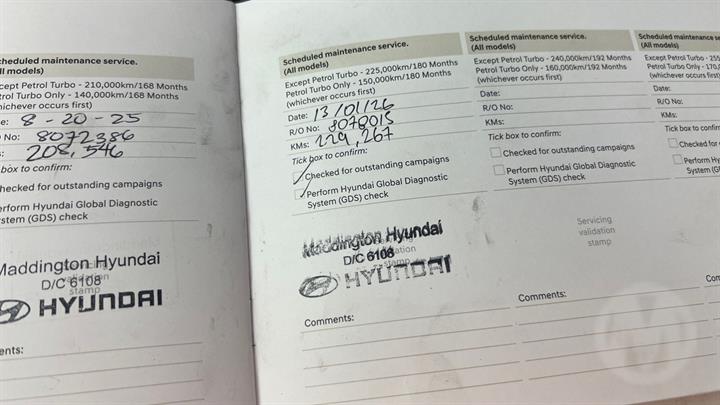 cheduled maintenance service.
ll models)
cept Petrol Turbo - 210,000km/168 Months
trol Turbo Only - 140,000km/168 Months
hichever occurs first)
e: 8 - 20 - 25
No: 8072386
s: 208,546
box to confirm:
hecked for outstanding campaigns
erform Hyundai Global Diagnostic
ystem (GDS) check
Servicing
validation
stamp
Maddington Hyundai
D/C 6108
HYUNDAI
ents:
Scheduled maintenance service.
(All models)
Except Petrol Turbo - 225,000km/180 Months
Petrol Turbo Only - 150,000km/180 Months
(whichever occurs first)
Date: 13/01/26
R/O No: 8078015
KMs: 229,267
Tick box to confirm:
Checked for outstanding campaigns
Perform Hyundai Global Diagnostic
System (GDS) check
Maddington Hyundai
D/C 6108
stamp
HYUNDAI
Comments:
Scheduled maintenance service.
(All models)
Except Petrol Turbo - 240,000km/192 Months
Petrol Turbo Only - 160,000km/192 Months
(whichever occurs first)
Date:
R/O No:
KMs:
Tick box to confirm:
Checked for outstanding campaigns
Perform Hyundai Global Diagnostic
System (GDS) check
Servicing
validation
stamp
Comments:
Scheduled maintenance se
(All models)
Except Petrol Turbo - 255
Petrol Turbo Only - 170,0
(whichever occurs first)
Date:
R/O No:
KMs:
Tick box to confirm:
Checked for
Perform Hy
System (G
Comments: